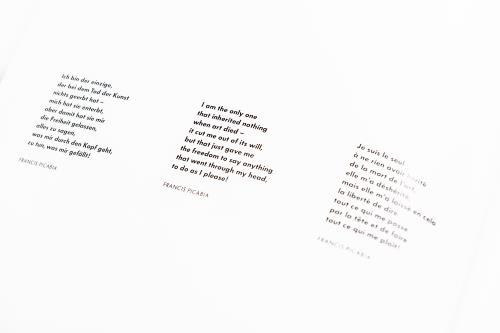 Ich bin der einzige,
der bei dem Tod der Kunst
nichts geerbt hat –
mich hat sie enterbt,
aber damit hat sie mir
die Freiheit gelassen,
alles zu sagen,
was mir durch den Kopf geht,
zu tun, was mir gefällt!
FRANCIS PICABIA
I am the only one
that inherited nothing
when art died –
it cut me out of its will,
but that just gave me
the freedom to say anything
that went through my head,
to do as I please!
FRANCIS PICABIA
Je suis le seul
à ne rien avoir hérité
de la mort de l'art,
elle m'a déshérité,
mais elle m'a laissé en cela
la liberté de dire
tout ce qui me passe
par la tête et de faire
tout ce qui me plaît!
FRANCIS PICABIA